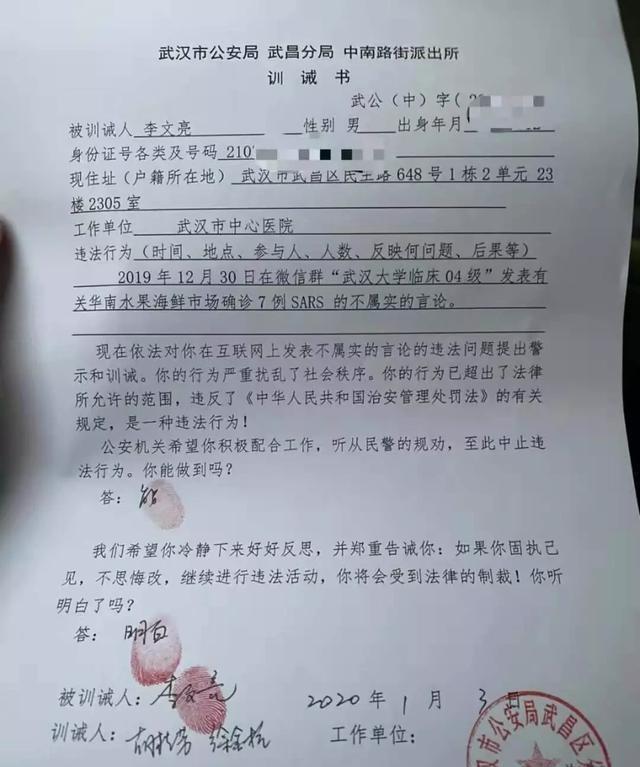 武汉市公安局 武昌分局 中南路街派出所
训 诫 书
武公（中）字（
被训诫人 李文亮 性别 男 出身年月
身份证号各类及号码 210
现住址（户籍所在地） 武汉市武昌区民主路 648 号 1 栋 2 单元 23
楼 2305 室
工作单位 武汉市中心医院
违法行为（时间、地点、参与人、人数、反映何问题、后果等）
2019 年 12 月 30 日在微信群“武汉大学临床 04 级”发表有
关华南水果海鲜市场确诊 7 例 SARS 的不属实的言论。
现在依法对你在互联网上发表不属实的言论的违法问题提出警
示和训诫。你的行为严重扰乱了社会秩序。你的行为已超出了法律
所允许的范围，违反了《中华人民共和国治安管理处罚法》的有关
规定，是一种违法行为！
公安机关希望你积极配合工作，听从民警的规劝，至此中止违
法行为。你能做到吗？
答：能
我们希望你冷静下来好好反思，并郑重告诫你：如果你固执己
见，不思悔改，继续进行违法活动，你将会受到法律的制裁！你听
明白了吗？
答：明白
被训诫人：李文亮 2020 年 1 月 3 日
训诫人： 工作单位：
汉市公安局武昌区分